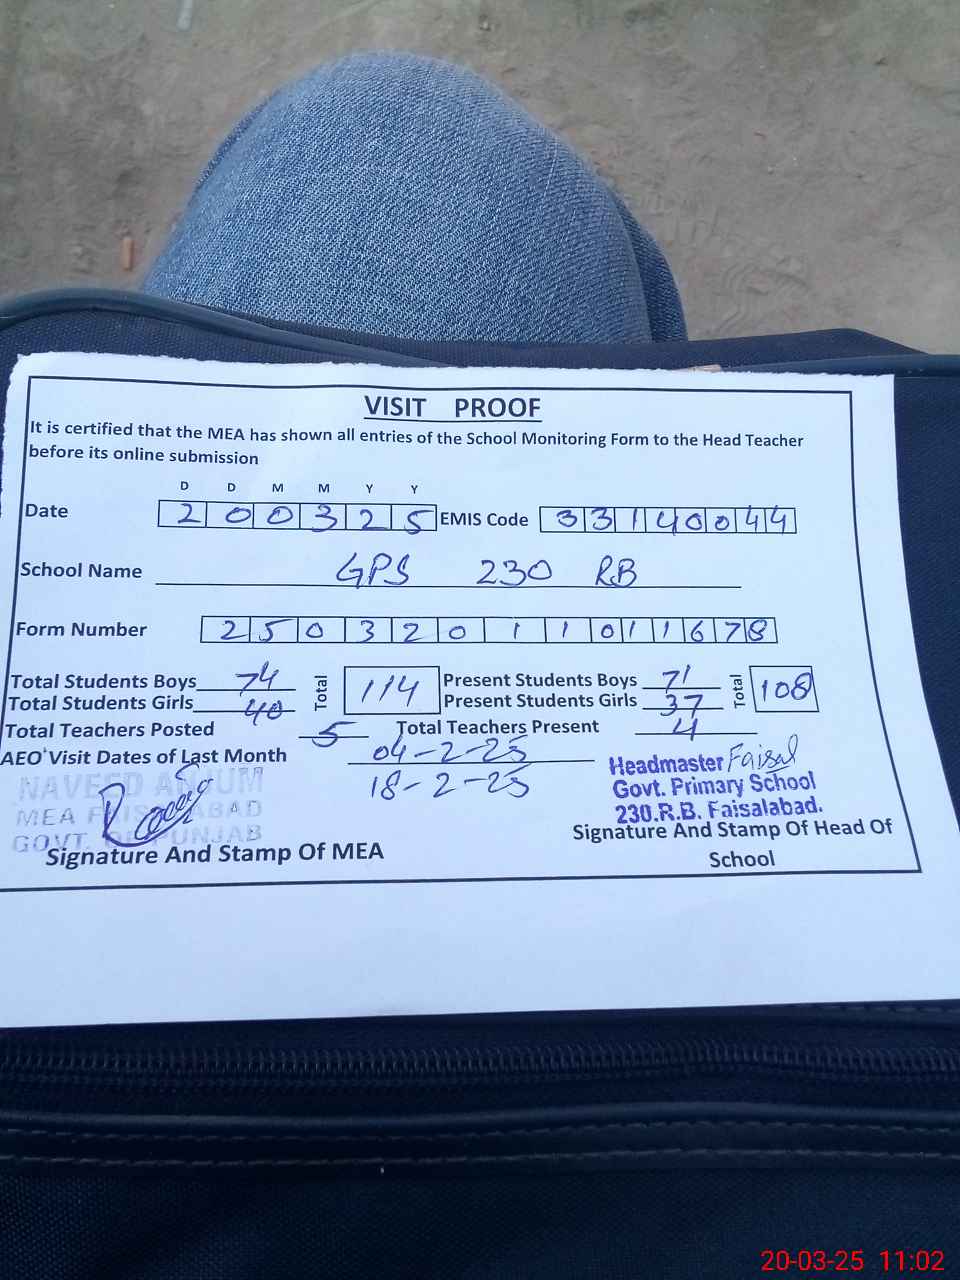 VISIT PROOF
It is certified that the MEA has shown all entries of the School Monitoring Form to the Head Teacher
before its online submission
D D M M Y Y
Date 2 0 0 3 2 5 EMIS Code 3 3 1 4 0 0 4 4
School Name GPS 230 RB
Form Number 2 5 0 3 2 0 1 1 0 1 1 6 7 8
Total Students Boys 74 Total 114 Present Students Boys 71 Total 108
Total Students Girls 40 Present Students Girls 37
Total Teachers Posted 5 Total Teachers Present 4
AEO' Visit Dates of Last Month 04-2-25
18-2-25
NAVEED ANJUM
MEA FAISALABAD
GOVT. OF PUNJAB
Signature And Stamp Of MEA
Headmaster Faisal
Govt. Primary School
230.R.B. Faisalabad.
Signature And Stamp Of Head Of
School
20-03-25 11:02